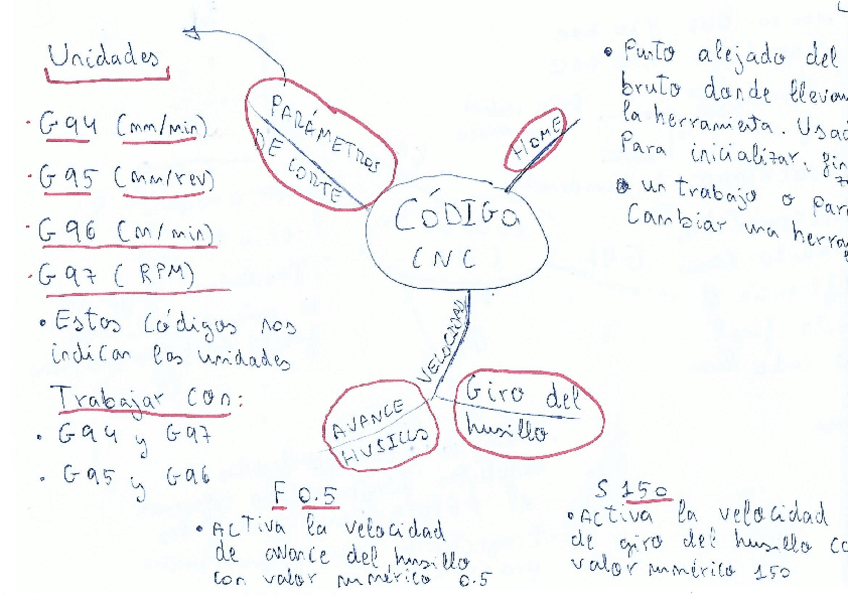 Unidades
G94 (mm/min)
G95 (mm/rev)
G96 (m/min)
G97 (RPM)
• Estos códigos nos
indican las unidades
Trabajar con:
• G94 y G97
• G95 y G96
PARÁMETROS
DE CORTE
HOME
• Punto alejado del
bruto donde
la herramienta.
Para inicializar,
un trabajo o
Cambiar una
CÓDIGO
CNC
VELOCIDAD
AVANCE
HUSILLO
Giro del
husillo
F 0.5
• ACTIVA la velocidad
de avance del husillo
con valor numérico 0.5
S 150
• ACTIVA la velocidad
de giro del husillo
valor numérico 150